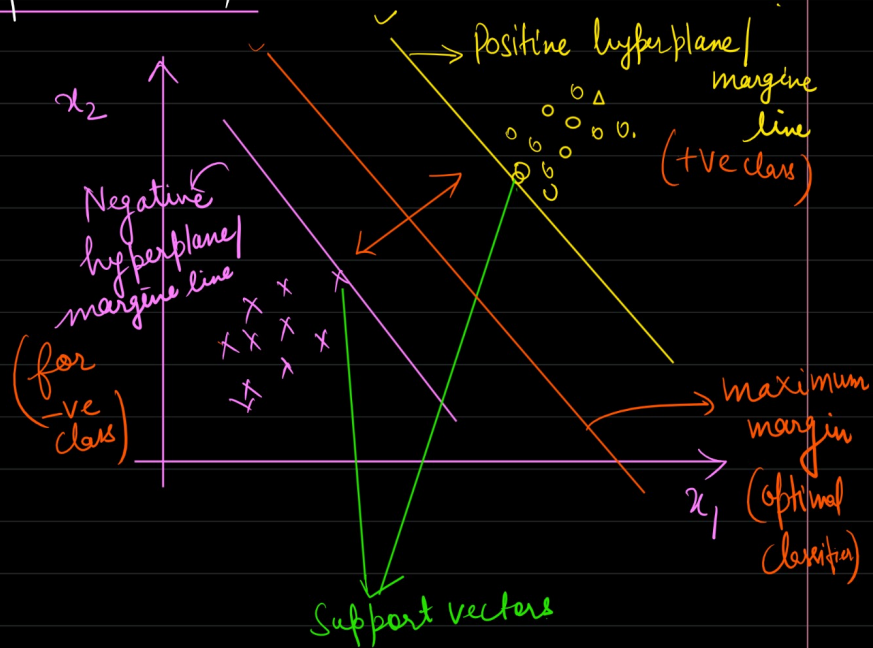 Positive hyperplane/
margine
line
(+ve class)
x2
Negative
hyperplane/
margine line
(for
-ve
class)
maximum
margin
(optimal
classifier)
x1
Support vectors